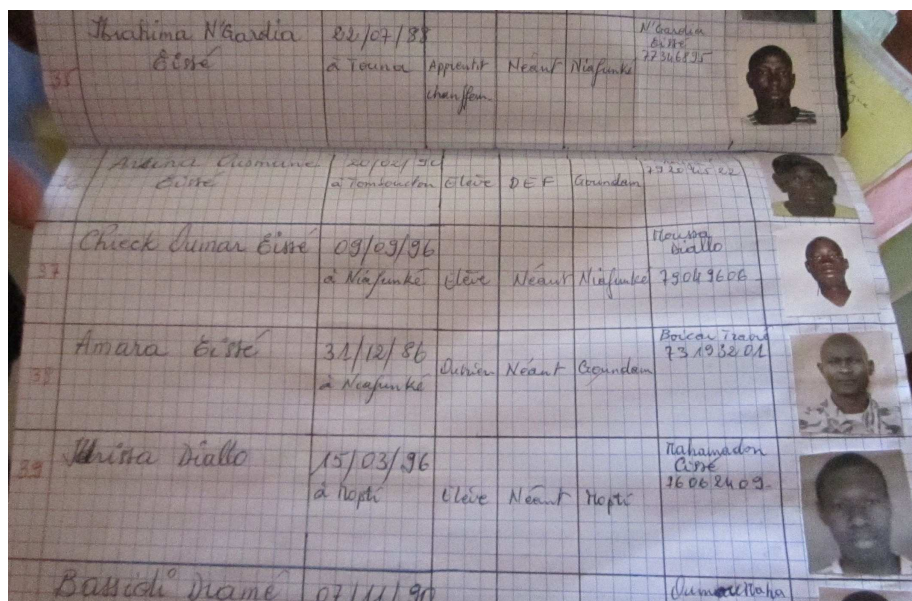 35 Ibrahima N'Gardia Cissé 22/07/88 à Touna Apprentit chauffeur Néant Niafunké N'Gardia Cissé 77346895
Ousmane Cissé 20/02/9 à Tombouctou Elève DEF Goundam
37 Chieck Oumar Cissé 09/09/96 à Niafunké Elève Néant Niafunké Moussa Diallo 79049606
38 Amara Cissé 31/12/86 à Niafunké Ouvrier Néant Goundam Boucar Traoré 73193201
39 Diallo 15/03/96 à Mopti Elève Néant Mopti Mahamadou Cissé 76062409
Bassidi Dramé 07/11/90